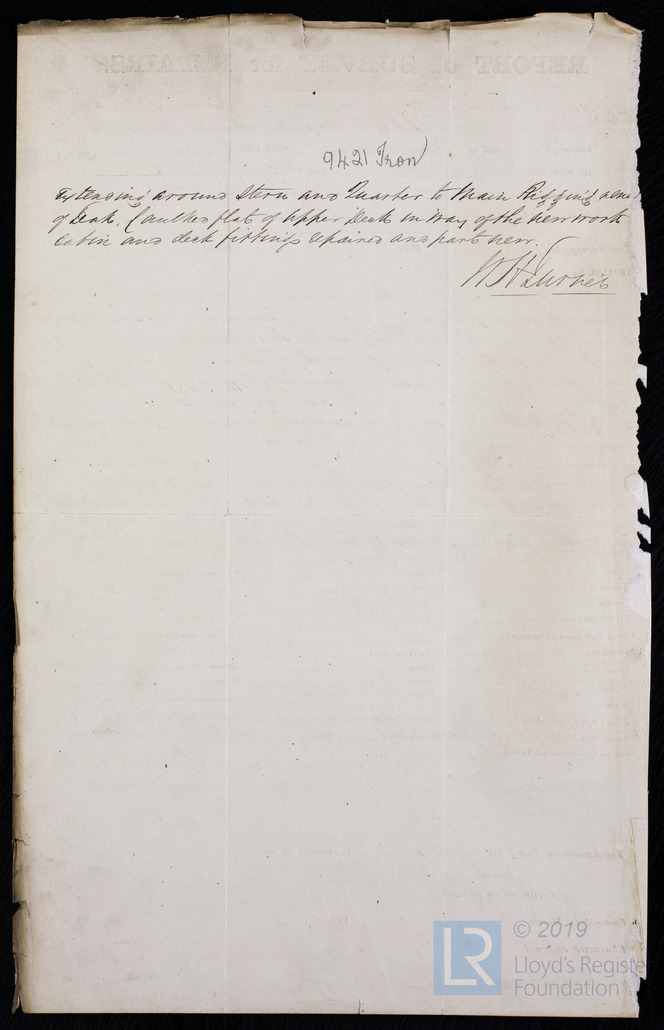 9421 Iron
Extending around Stern and Quarter to Main Rigging
of Teak. Caulked flat of Upper Deck in way of the new work
Cabin and deck fittings repaired and part new.
W H Turner
© 2019
LR
Lloyd's Register
Foundation